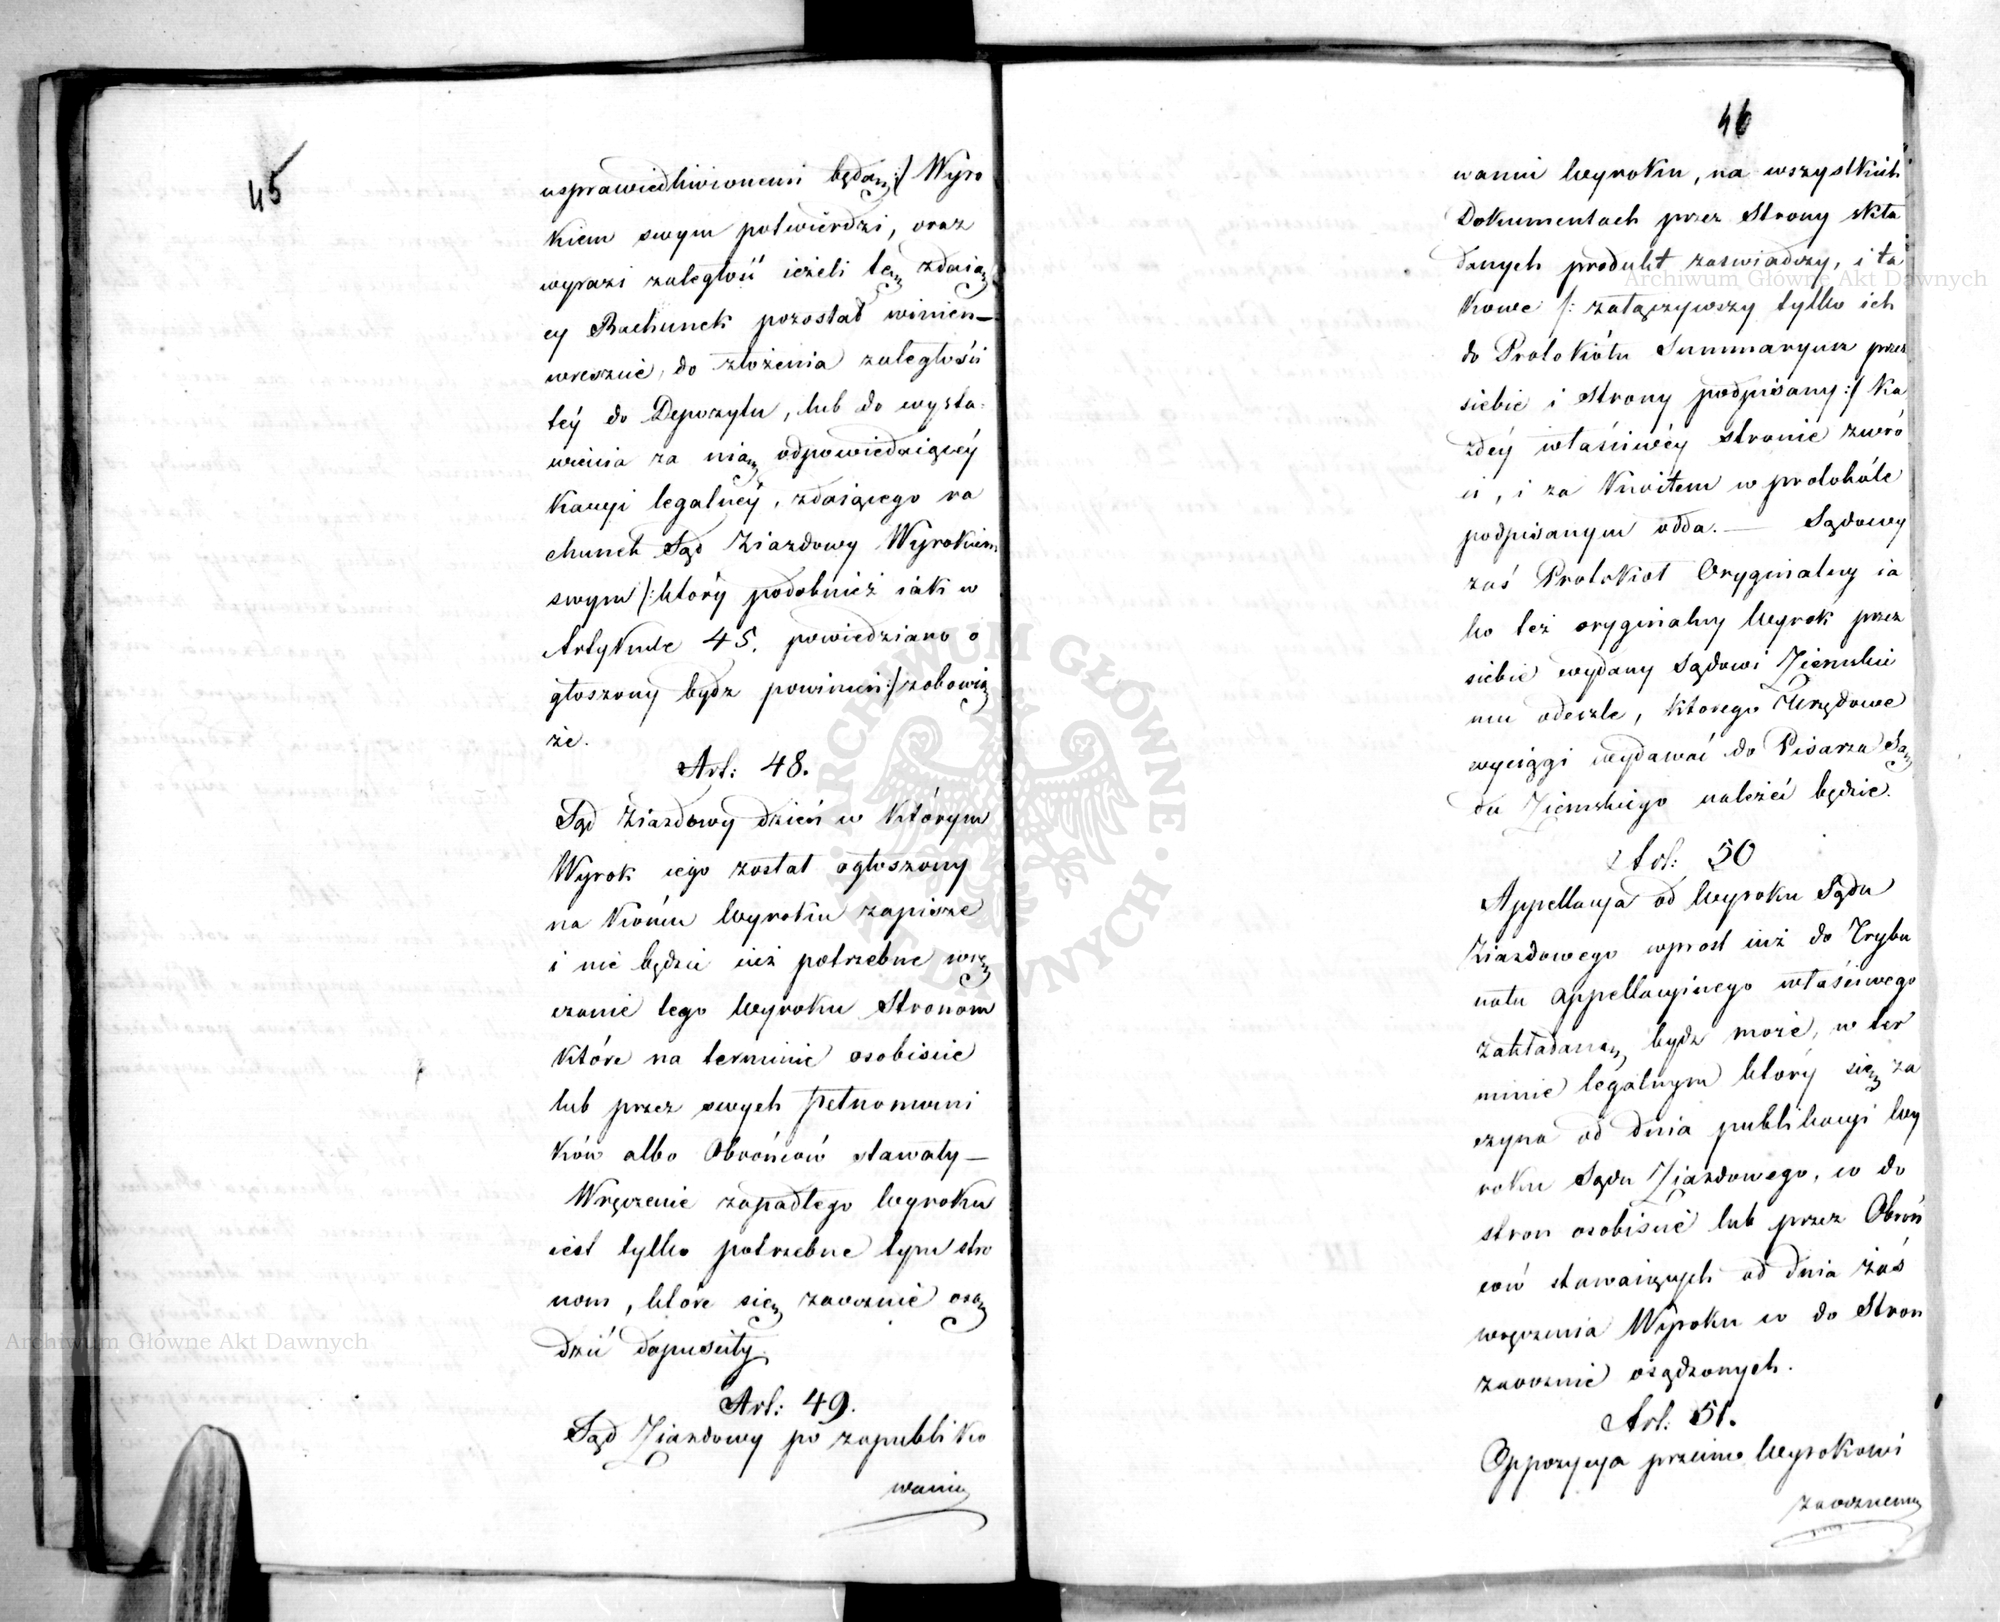 45
usprawiedliwionemi będą :/ Wyro
kiem swym potwierdzi, oraz
wyrazi zaległość ieżeli tę zdaią
cy Rachunek pozostał winien —
wreszcie, do złożenia zaległości
téy do Depozytu, lub do wysta-
wienia za nią odpowiedniéy
Kaucyi legalnéy, zdaiącego ra
chunek Sąd Ziazdowy Wyrokiem
swym /: który podobnież iak w
Artykule 45. powiedziano o
głoszony bydz powinien :/ zobowią
że.
Art: 48.
Sąd Ziazdowy dzień w którym
Wyrok iego został ogłoszony
na końcu Wyroku zapisze
i nie będzie iuż potrzebne wrę
czenie tego Wyroku Stronom
które na terminie osobiście
lub przez swych pełnomocni
ków albo Obrońców stawały —
Wręczenie zapadłego Wyroku
iest tylko potrzebne tym stro
nom, które się zaocznie osą
dzić dopuściły.
Art: 49.
Sąd Ziazdowy po zapubliko
waniu
46
waniu Wyroku, na wszystkich
Dokumentach przez Strony skła
danych produkt zaświadczy, i ta
kowe /: załączywszy tylko ich
do Protokółu Summaryusz przez
siebie i Strony podpisany :/ Ka
żdéy właściwéy stronie zwró
ci, i za Kwitem w protokóle
podpisanym odda. — Sądowy
zaś Protokół Oryginalny ia
ko też oryginalny Wyrok przez
siebie wydany Sądowi Ziemskie
mu odeszle, ktorego Urzędowe
wyciągi wydawać do Pisarza Są
du Ziemskiego należeć będzie.
Art: 50
Appellacya od Wyroku Sądu
Ziazdowego wprost iuż do Trybu
nału Appellacyinego właściwego
zakładaną bydz może, w ter
minie legalnym który się za
czyna od dnia publikacyi Wy
roku Sądu Ziazdowego, co do
stron osobiście lub przez Obroń
ców stawaiących od dnia zaś
wręczenia Wyroku co do Stron
zaocznie osądzonych.
Art: 51.
Oppozycya przeciwko Wyrokowi
zaocznemu
Archiwum Główne Akt Dawnych
Archiwum Główne Akt Dawnych
ARCHIWUM GŁÓWNE • AKT DAWNYCH •